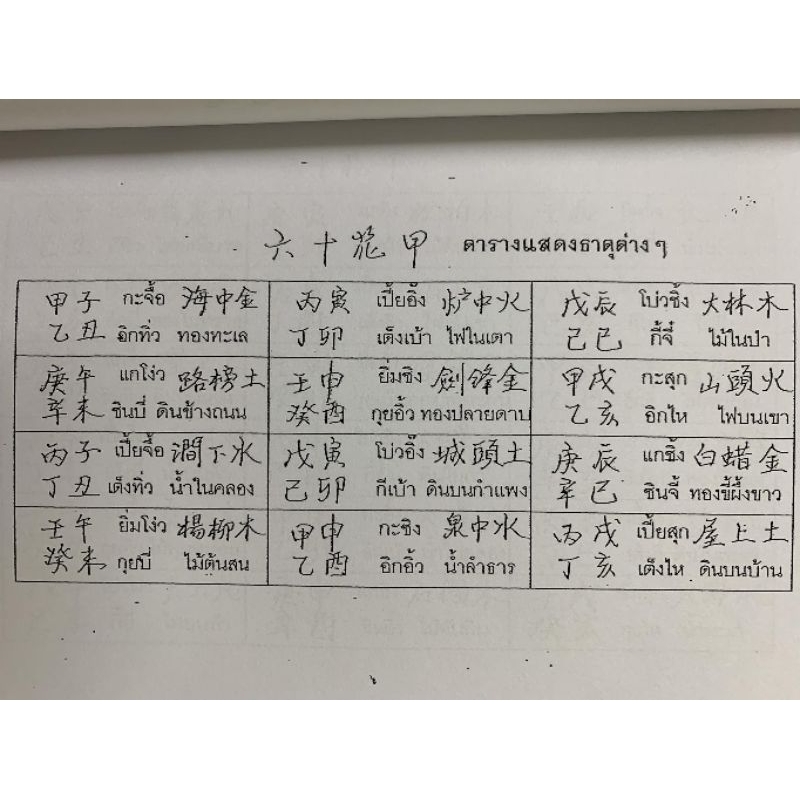 六十花甲 ตารางแสดงธาตุต่างๆ
甲子 กะจื้อ 海中金
乙丑 อิกทิ่ว ทองทะเล
丙寅 เปี้ยอิ๊ง 炉中火
丁卯 เต็งเบ้า ไฟในเตา
戊辰 โบ่วซิ้ง 大林木
己巳 กี้จี๋ ไม้ในป่า
庚午 แกโง่ว 路榜土
辛未 ซินบี่ ดินข้างถนน
壬申 ยิ่มซิง 劍鋒金
癸酉 กุยอิ้ว ทองปลายดาบ
甲戌 กะสุก 山頭火
乙亥 อิกไห ไฟบนเขา
丙子 เปี้ยจื้อ 澗下水
丁丑 เต็งทิ่ว น้ำในคลอง
戊寅 โบ่วอิ๊ง 城頭土
己卯 กีเบ้า ดินบนกำแพง
庚辰 แกซิ้ง 白蜡金
辛巳 ซินจี้ ทองขี้ผึ้งขาว
壬午 ยิ่มโง่ว 楊柳木
癸未 กุยบี่ ไม้ต้นสน
甲申 กะซิง 泉中水
乙酉 อิกอิ้ว น้ำลำธาร
丙戌 เปี้ยสุก 屋上土
丁亥 เต็งไห ดินบนบ้าน